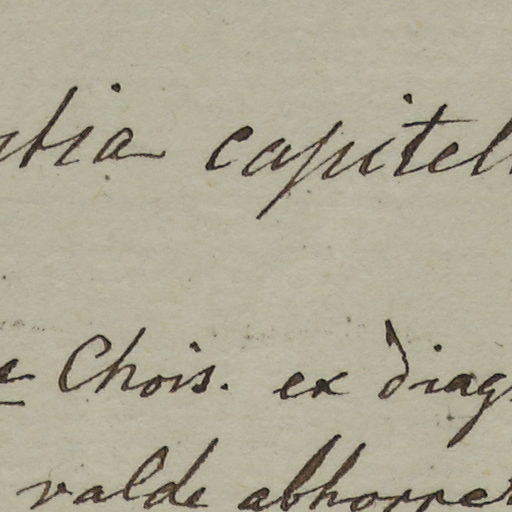 capitel
Chois. ex diag
valde abhorre